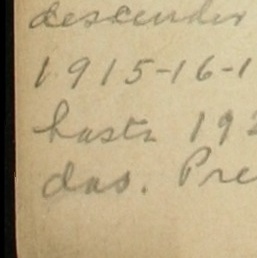 descender
1915-16-1
hasta 192
das. Pre